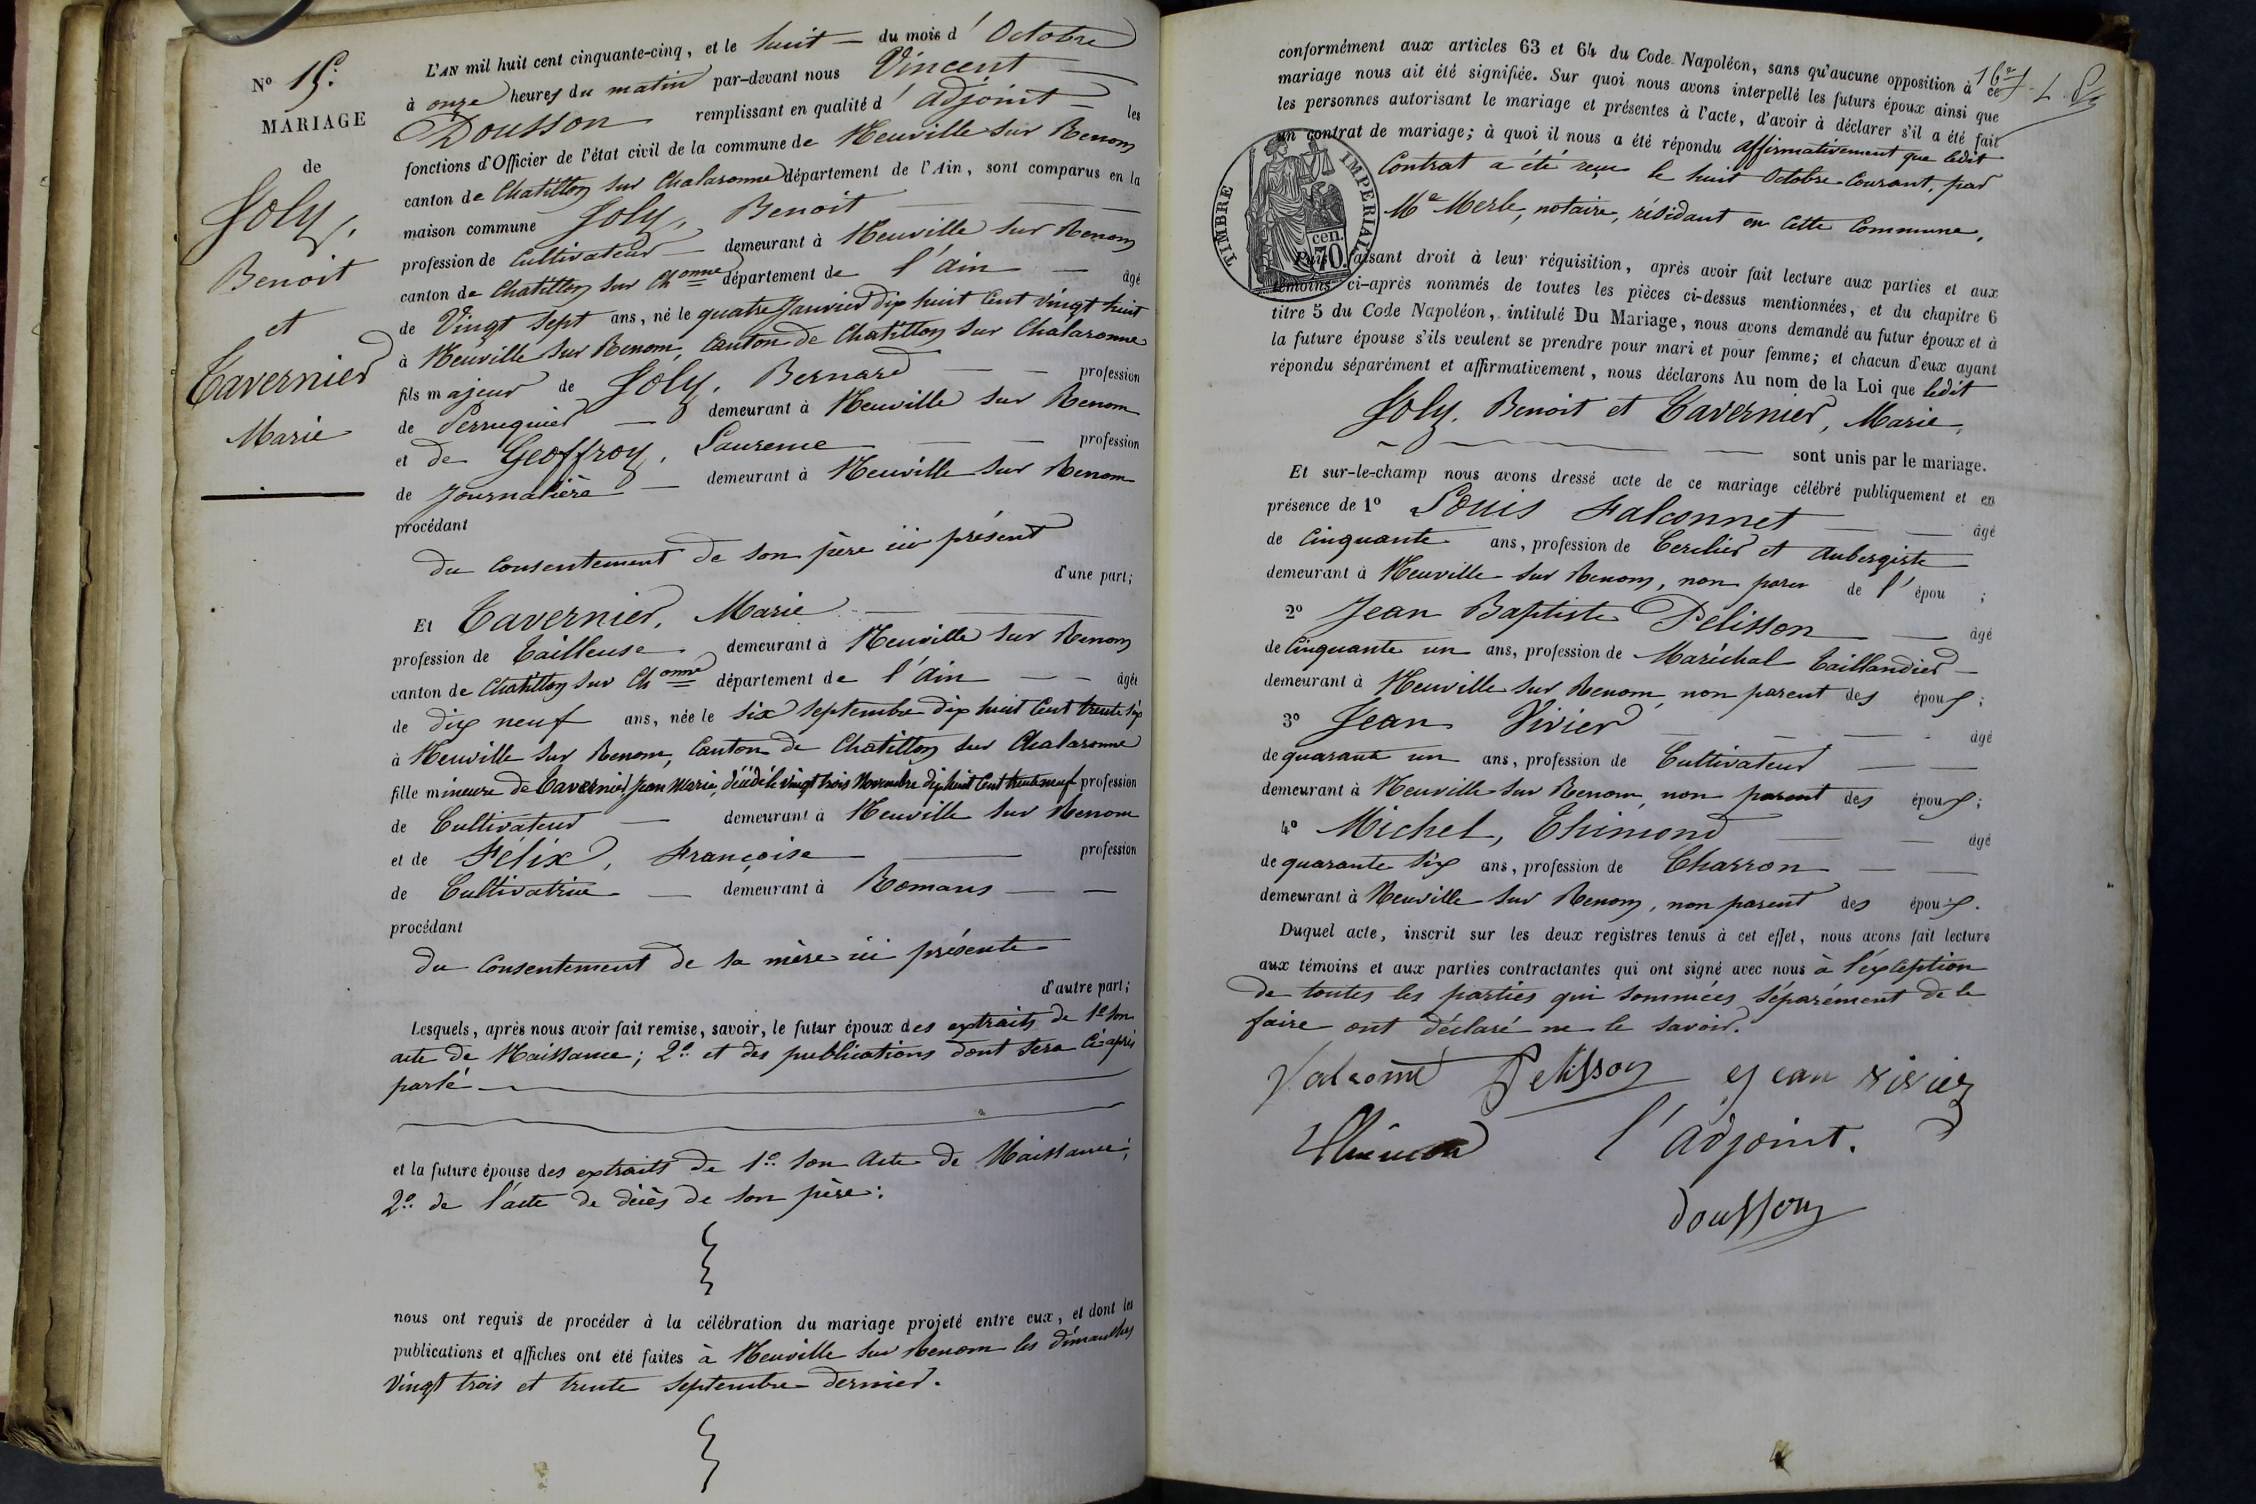 N° 15.
MARIAGE
de
Joly,
Benoit
et
Tavernier
Marie
L'AN mil huit cent cinquante-cinq, et le huit — du mois d'Octobre
à onze heures du matin par-devant nous Vincent
Dousson remplissant en qualité d'adjoint les
fonctions d'Officier de l'état civil de la commune de Neuville sur Renom
canton de Chatillon sur Chalaronne département de l'Ain, sont comparus en la
maison commune Joly, Benoit
profession de Cultivateur — demeurant à Neuville sur Renom
canton de Chatillon sur Ch.onne département de l'Ain — âgé
de Vingt sept ans, né le quatre Janvier dix huit Cent vingt huit
à Neuville sur Renom, Canton de Chatillon sur Chalaronne
fils majeur de Joly, Bernard — — profession
de Perruquier — demeurant à Neuville sur Renom
et de Geoffroy, Laurence — — profession
de Journalière — demeurant à Neuville sur Renom
procédant
du consentement de son père ici présent
d'une part;
Et Tavernier, Marie
profession de Tailleuse demeurant à Neuville sur Renom
canton de Chatillon sur Ch.onne département de l'Ain — — âgée
de dix neuf ans, née le six septembre dix huit Cent trente six
à Neuville sur Renom, Canton de Chatillon sur Chalaronne
fille mineure de Tavernier Jean Marie, décédé le vingt trois Novembre dix huit Cent trente neuf profession
de Cultivateur — demeurant à Neuville sur Renom
et de Félix, Françoise — profession
de Cultivatrice — demeurant à Romans — —
procédant
du consentement de sa mère ici présente
d'autre part;
Lesquels, après nous avoir fait remise, savoir, le futur époux des extraits de 1° son
acte de Naissance; 2° et des publications dont sera ci après
parlé
et la future épouse des extraits de 1° son Acte de Naissance;
2° de l'acte de décès de son père:
nous ont requis de procéder à la célébration du mariage projeté entre eux, et dont les
publications et affiches ont été faites à Neuville sur Renom les dimanches
Vingt trois et trente Septembre dernier.
conformément aux articles 63 et 64 du Code Napoléon, sans qu'aucune opposition à ce
mariage nous ait été signifiée. Sur quoi nous avons interpellé les futurs époux ainsi que
les personnes autorisant le mariage et présentes à l'acte, d'avoir à déclarer s'il a été fait
un contrat de mariage; à quoi il nous a été répondu affirmativement que ledit
Contrat a été reçu le huit Octobre Courant, par
Me Merle, notaire, résidant en cette Commune,
TIMBRE IMPERIAL
70 cen.
Puis, faisant droit à leur réquisition, après avoir fait lecture aux parties et aux
témoins ci-après nommés de toutes les pièces ci-dessus mentionnées, et du chapitre 6
titre 5 du Code Napoléon, intitulé Du Mariage, nous avons demandé au futur époux et à
la future épouse s'ils veulent se prendre pour mari et pour femme; et chacun d'eux ayant
répondu séparément et affirmativement, nous déclarons Au nom de la Loi que ledit
Joly, Benoit et Tavernier, Marie,
sont unis par le mariage.
Et sur-le-champ nous avons dressé acte de ce mariage célébré publiquement et en
présence de 1° Louis Falconnet — — âgé
de Cinquante ans, profession de Cerclier et Aubergiste
demeurant à Neuville sur Renom, non paren de l'épou ;
2° Jean Baptiste Pelisson — âgé
de Cinquante un ans, profession de Maréchal Taillandier —
demeurant à Neuville sur Renom, non parent des époux;
3° Jean Vivier — — — âgé
de quarante un ans, profession de Cultivateur — —
demeurant à Neuville sur Renom, non parent des époux;
4° Michel, Thimond — — âgé
de quarante six ans, profession de Charron — —
demeurant à Neuville sur Renom, non parent des époux.
Duquel acte, inscrit sur les deux registres tenus à cet effet, nous avons fait lecture
aux témoins et aux parties contractantes qui ont signé avec nous à l'exception
de toutes les parties qui sommées séparément de le
faire ont déclaré ne le savoir.
Pelisson Jean vivier
Thimon l'adjoint.
Dousson